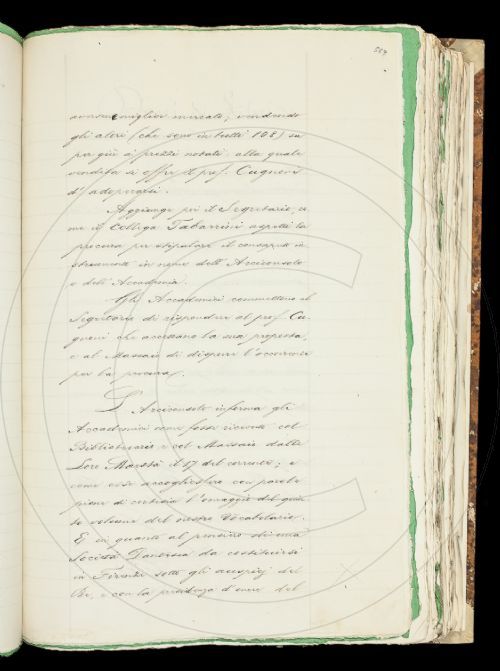 miglior mercato; vendendo
gli altri (che sono in tutti 108) su
per giù a' prezzi notati, alla quale
vendita si offre il prof. Cugnoni
d'adoperarsi.
Aggiunge poi il Segretario, co
me il Collega Tabarrini aspetti la
procura per stipulare il
strumento in nome dell'Arciconsolo
e dell'Accademia.
Gli Accademici commettono al
Segretario di rispondere al prof. Cu-
gnoni che accettano la sua proposta,
e al Massaio di disporre l'occorrente
per la procura.
L'Arciconsolo informa gli
Accademici come fosse ricevuto col
Bibliotecario e col Massaio dalle
Loro Maestà il 17 del corrente; e
come esse accogliessero con parole
piene di cortesia l'omaggio del quin
to volume del nostro Vocabolario.
E in quanto al pensiero di una
Società Dantesca da costituirsi
in Firenze sotto gli auspicj del
Re, e con la presidenza d'onore del